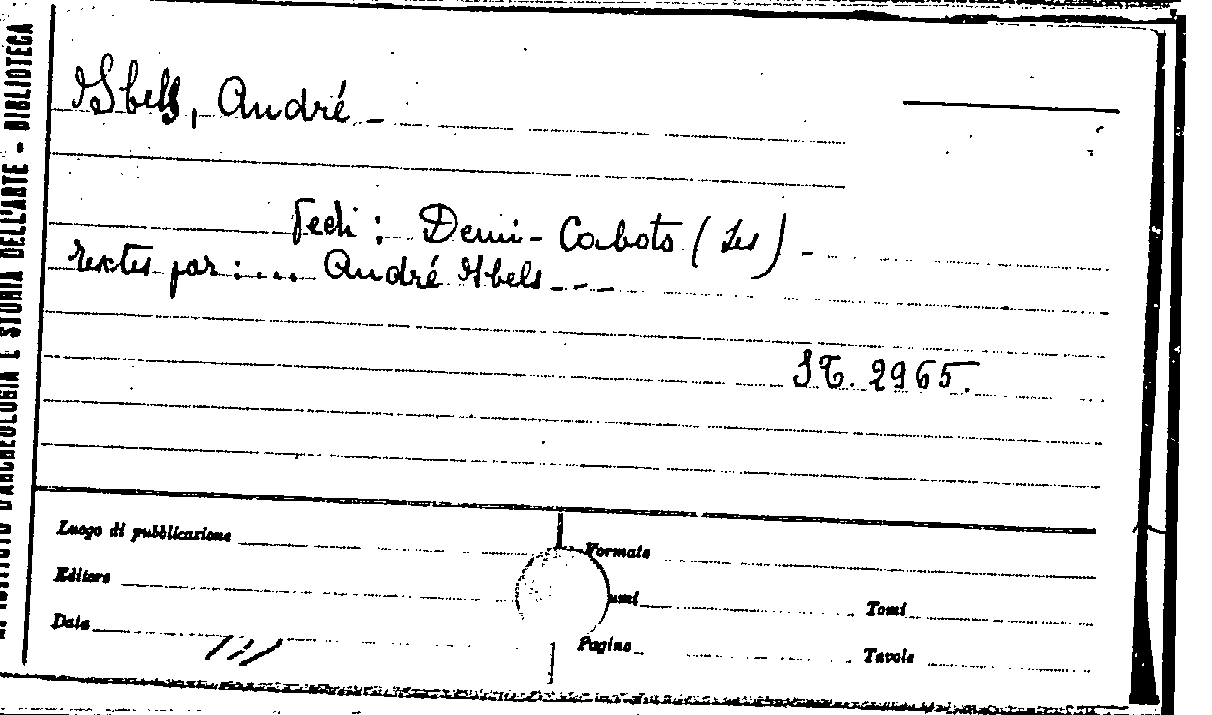 Ibels, André -
Vedi : Demi-Cabots (Les) -
textes par : ... André Ibels - - -
ST. 2965.
Luogo di pubblicazione
Formato
Editore
umi
Tomi
Data
Pagine
Tavole
D'ARCHEOLOGIA E STORIA DELL'ARTE - BIBLIOTECA